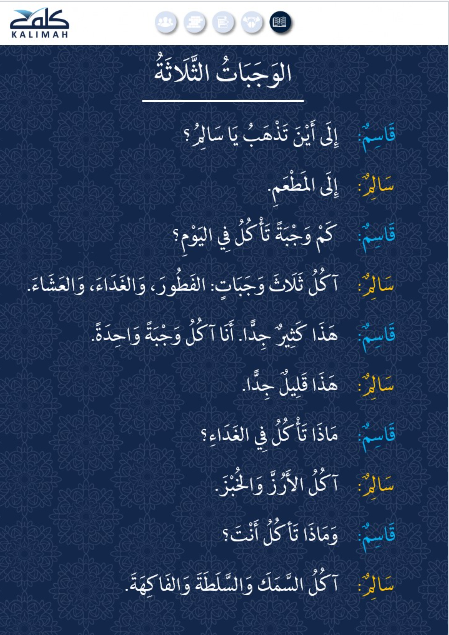 كلمة
KALIMAH
الوَجَبَاتُ الثَّلَاثَةُ
قَاسِمٌ: إِلَى أَيْنَ تَذْهَبُ يَا سَالِمُ؟
سَالِمٌ: إِلَى المَطْعَمِ.
قَاسِمٌ: كَمْ وَجْبَةً تَأْكُلُ فِي اليَوْمِ؟
سَالِمٌ: آكُلُ ثَلَاثَ وَجَبَاتٍ: الفَطُورَ، وَالغَدَاءَ، وَالعَشَاءَ.
قَاسِمٌ: هَذَا كَثِيرٌ جِدًّا. أَنَا آكُلُ وَجْبَةً وَاحِدَةً.
سَالِمٌ: هَذَا قَلِيلٌ جِدًّا.
قَاسِمٌ: مَاذَا تَأْكُلُ فِي الغَدَاءِ؟
سَالِمٌ: آكُلُ الأَرُزَّ وَالخُبْزَ.
قَاسِمٌ: وَمَاذَا تَأكُلُ أَنْتَ؟
سَالِمٌ: آكُلُ السَّمَكَ وَالسَّلَطَةَ وَالفَاكِهَةَ.